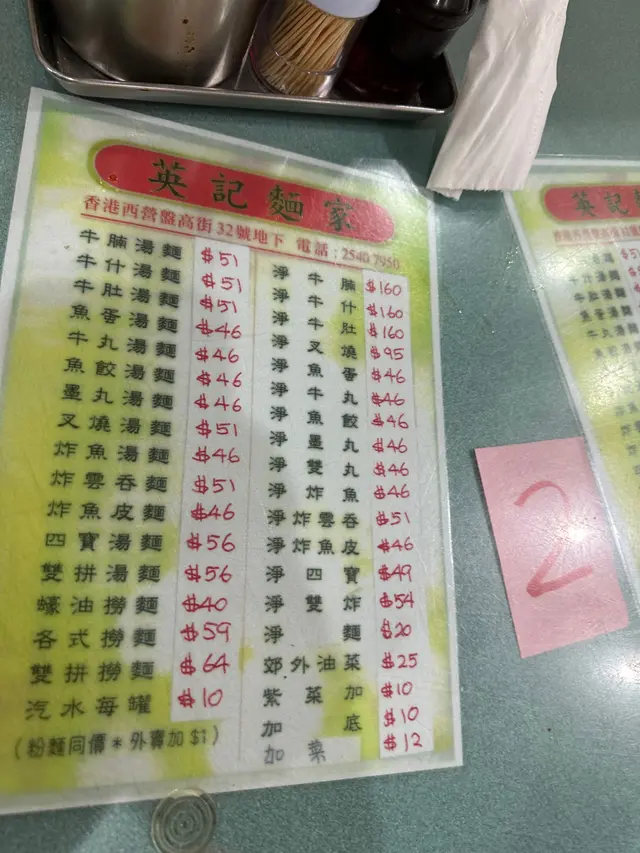 英記麵家
香港西營盤高街32號地下 電話：2540 7950
牛腩湯麵 $51
牛什湯麵 $51
牛肚湯麵 $51
魚蛋湯麵 $46
牛丸湯麵 $46
魚餃湯麵 $46
墨丸湯麵 $46
叉燒湯麵 $51
炸魚湯麵 $46
炸雲吞麵 $51
炸魚皮麵 $46
四寶湯麵 $56
雙拼湯麵 $56
蠔油撈麵 $40
各式撈麵 $59
雙拼撈麵 $64
汽水每罐 $10
(粉麵同價*外賣加$1)
淨牛腩 $160
淨牛什 $160
淨牛肚 $160
淨叉燒 $95
淨魚蛋 $46
淨牛丸 $46
淨魚餃 $46
淨墨丸 $46
淨雙丸 $46
淨炸魚 $46
淨炸雲吞 $51
淨炸魚皮 $46
淨四寶 $49
淨雙炸 $54
淨麵 $20
郊外油菜 $25
紫菜加 $10
加底 $10
加菜 $12
2
英記
牛什湯麵
牛肚湯麵
魚蛋湯麵
牛丸湯麵